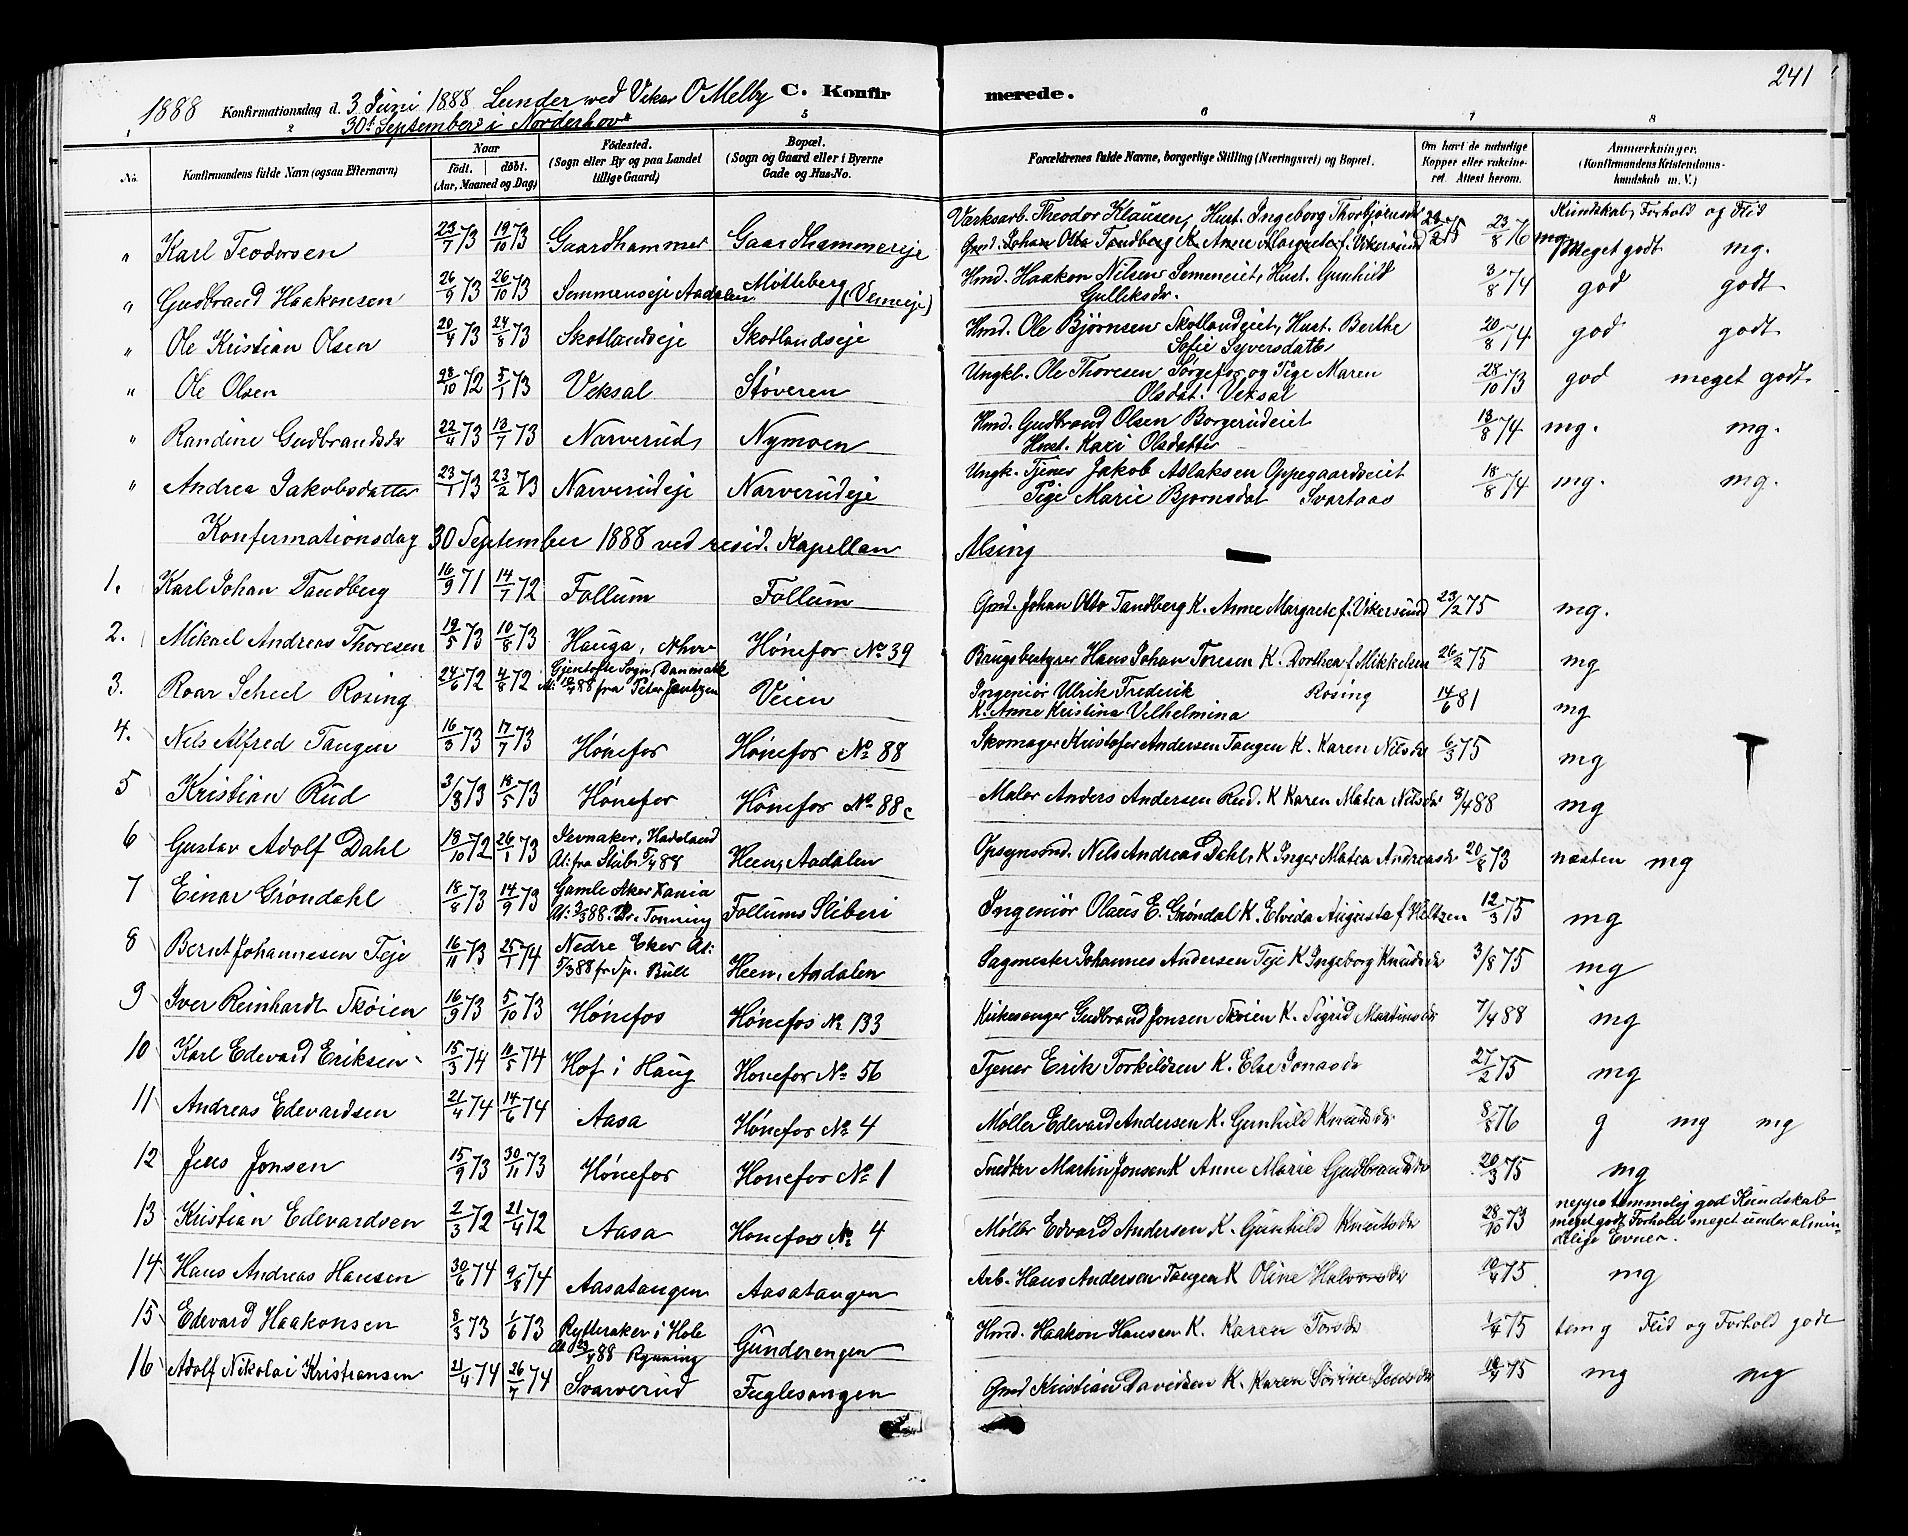 241
1888 Konfirmationsdag d. 3 Juni 1888 Lunder ved Vikar O Melby C. Konfirmerede.
30te September i Norderhov
1 2 5 6 7 8
No. Konfirmandens fulde Navn (ogsaa Efternavn) Naar født. døbt. (Aar, Maaned og Dag) Fødested. (Sogn eller By og paa Landet tillige Gaard) Bopæl. (Sogn og Gaard eller i Byerne Gade og Hus-No. Forældrenes fulde Navne, borgerlige Stilling (Næringsvei) og Bopæl. Om havt de naturlige Kopper eller vaccineret. Attest herom. Anmærkninger. (Konfirmandens Kristendomskundskab m. V.)
Kundskab, Forhold og Flid
" Karl Teodorsen 23/7 73 19/10 73 Gaardhammer Gaardhammereje Værksarb. Theodor Klausen, Hust. Ingeborg Thorbjørnsdr 23/8 76 Meget godt mg.
Gmd. Johan Otto Tandberg K. Anne Margrete f. Vikersund 23/2 75 mg
" Gudbrand Haakonsen 26/9 73 26/10 73 Semmenseje Aadalen Møtteberg (Vemeje) Hmd. Haakon Nilsen Semeneiet, Hust. Gunhild Gulliksdr. 3/8 74 god godt
" Ole Kristian Olsen 20/4 73 24/8 73 Skotlandseje Skotlandseje Hmd. Ole Bjørnsen Skotlandeiet, Hust. Berthe Sofie Syversdatter 20/8 74 god godt
" Ole Olsen 28/10 72 5/1 73 Veksal Støveren Ungkl. Ole Thoresen Sørgefos og Pige Maren Olsdat. Veksal 28/10 73 god meget godt
" Randine Gudbrandsdr 22/4 73 13/7 73 Narverud Nymoen Hmd. Gudbrand Olsen Borgerudeiet Hust. Kari Olsdatter 18/8 74 mg. mg.
" Andrea Jakobsdatter 23/1 73 23/2 73 Narverudeje Narverudeje Ungk. Tjener Jakob Aslaksen Oppegaardseiet Pige Marie Bjørnsdat Svartaas 18/8 74 mg. mg.
Konfirmationsdag 30 September 1888 ved resid. Kapellan Alsing
1. Karl Johan Tandberg 16/9 71 14/7 72 Follum Follum Gmd. Johan Otto Tandberg K. Anne Margrete f. Vikersund 23/2 75 mg.
2. Mikael Andreas Thoresen 19/5 73 10/8 73 Hauga, Nhov Hønefos No 39 Brugsbestyrer Hans Johan Toresen K. Dorthea f Mikkelsen 26/2 75 mg
3. Roar Scheel Rosing 24/6 72 4/8 72 Gjentofte Sogn, Danmark At: 18/9 88 fra Peter Jantzen Veien Ingeniør Ulrik Frederik Rosing K. Anne Kristina Velhelmina 14/6 81 mg
4. Nils Alfred Tangen 16/3 73 17/7 73 Hønefos Hønefos No 88 Skomager Kristofer Andersen Tangen K. Karen Nilsdr 6/3 75 mg
5 Kristian Rud 3/3 73 18/5 73 Hønefos Hønefos No 88c Maler Anders Andersen Rud. K Karen Matea Nilsdr 8/4 88 mg
6 Gustav Adolf Dahl 18/10 72 26/1 73 Jevnaker, Hadeland At: fra Stibr 5/4 88 Heen, Aadalen Opsynsmd. Nils Andreas Dahl, K Inger Matea Andreasdr 20/8 73 næsten mg
7 Einar Grøndahl 18/8 73 14/9 73 Gamle Aker Xania At: 3/3 88. Dr. Tonning Follums Sliberi Ingeniør Olaus E. Grøndal K. Elvida Augusta f Heltzen 12/3 75 mg
8 Bernt Johannesen Teje 16/11 73 25/1 74 Nedre Eker At: 5/3 88 fr Sp. Bull Heen, Aadalen Sagmester Johannes Andersen Teje K Ingeborg Knudsdr 3/8 75 mg
9 Iver Reinhardt Skøien 16/9 73 5/10 73 Hønefos Hønefos No 133 Kirkesanger Gudbrand Jonsen Skøien K. Sigrid Martinsdr 7/4 88 mg
10 Karl Edevard Eriksen 15/3 74 10/5 74 Hof i Haug Hønefos No 56 Tjener Erik Torkildsen K. Else Jonasdr 27/2 75 mg
11 Andreas Edevardsen 21/4 74 14/6 74 Aasa Hønefos No 4 Møller Edevard Andersen K. Gunhild Knudsdr. 8/8 76 g mg mg
12 Jens Jonsen 15/9 73 30/11 73 Hønefos Hønefos No 1 Snedker Martin Jonsen K Anne Marie Gudbrandsdr 20/3 75 mg
13 Kristian Edevardsen 2/3 72 21/4 72 Aasa Hønefos No 4 Møller Edvard Andersen K. Gunhild Knudsdr 28/10 73 neppe temmelig god Kundskab
meget godt Forhold meget under almin-
delige Evner.
14 Hans Andreas Hansen 30/6 74 9/8 74 Aasatangen Aasatangen Arb. Hans Andersen Tangen K Oline Halvorsdr 10/4 75 mg
15 Edevard Haakonsen 8/3 73 1/6 73 Rytteraker i Hole At 23/4 88 Rynning Gunderengen Hmd. Haakon Hansen K. Karen Torsdr 1/4 75 temg Flid og Forhold godt
16 Adolf Nikolai Kristiansen 21/4 74 26/7 74 Svarverud Fuglesangen Gmd Kristian Davidsen K. Karen Sørine Jensdr 10/4 75 mg mg